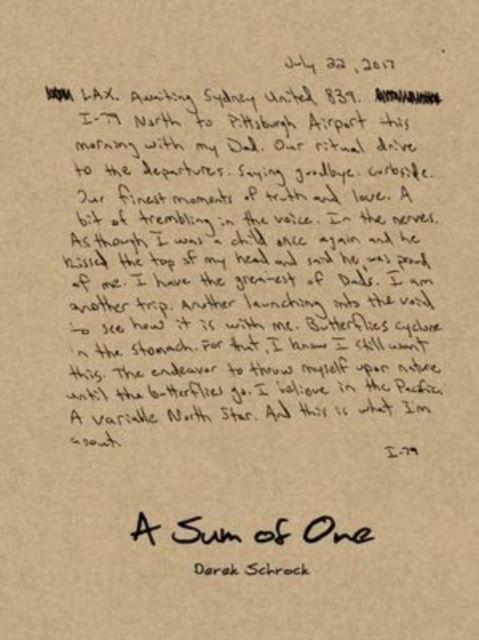 July 22, 2017
LAX. Awaiting Sydney United 839.
I-79 North to Pittsburgh Airport this
morning with my Dad. Our ritual drive
to the departures. Saying goodbye. Curbside.
Our finest moments of truth and love. A
bit of trembling in the voice. In the nerves.
As though I was a child once again and he
kissed the top of my head and said he was proud
of me. I have the greatest of Dads. I am
another trip. Another launching into the void
to see how it is with me. Butterflies cyclone
in the stomach. For that, I know I still want
this. The endeavor to throw myself upon nature
until the butterflies go. I believe in the Pacific.
A variable North Star. And this is what I'm
about.
I-79
A Sum of One
Derek Schrock